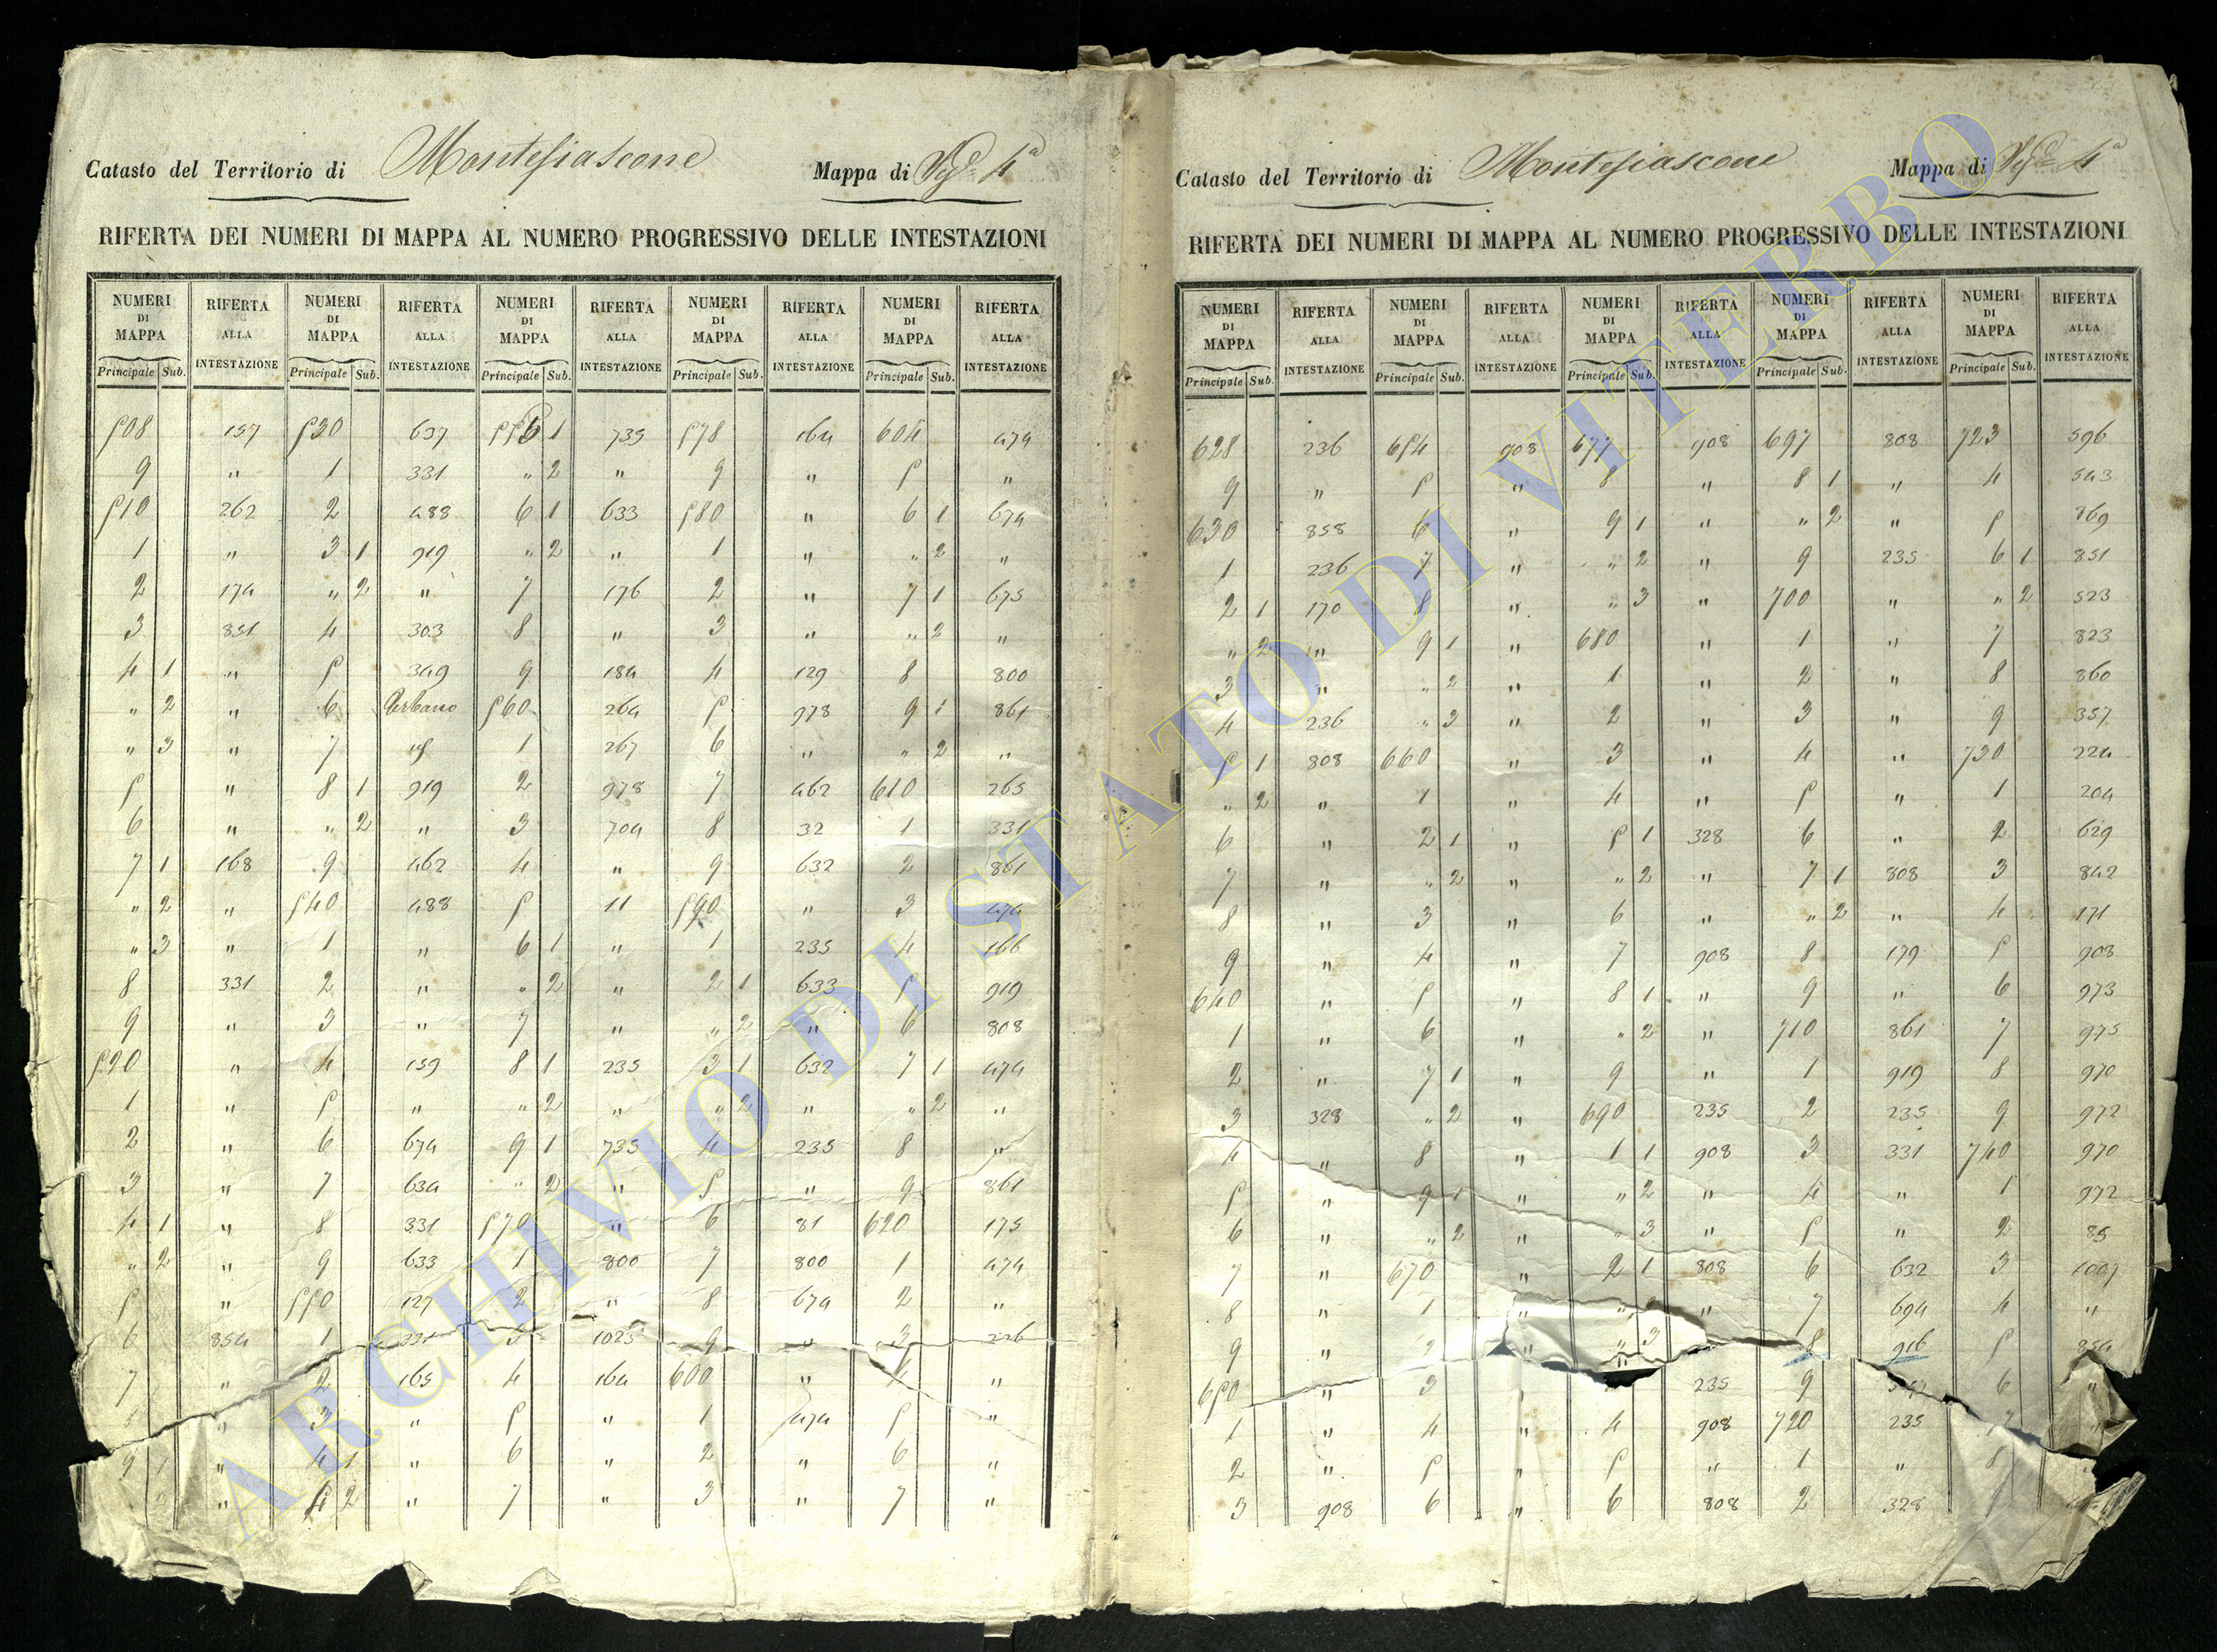 Catasto del Territorio di Montefiascone Mappa di Seg.e 4a
RIFERTA DEI NUMERI DI MAPPA AL NUMERO PROGRESSIVO DELLE INTESTAZIONI
NUMERI DI MAPPA RIFERTA ALLA INTESTAZIONE NUMERI DI MAPPA RIFERTA ALLA INTESTAZIONE NUMERI DI MAPPA RIFERTA ALLA INTESTAZIONE NUMERI DI MAPPA RIFERTA ALLA INTESTAZIONE NUMERI DI MAPPA RIFERTA ALLA INTESTAZIONE
Principale Sub. Principale Sub. Principale Sub. Principale Sub. Principale Sub.
508 157 530 637 555 1 735 578 164 604 474
9 " 1 331 " 2 " 9 " 5 "
510 262 2 488 6 1 633 580 " 6 1 674
1 " 3 1 919 " 2 " 1 " " 2 "
2 174 " 2 " 7 176 2 " 7 1 675
3 851 4 303 8 " 3 " " 2 "
4 1 " 5 349 9 184 4 129 8 800
" 2 " 6 Urbano 560 264 5 978 9 1 861
" 3 " 7 1 267 6 " " 2 "
5 " 8 1 919 2 978 7 462 610 265
6 " " 2 " 3 704 8 32 1 331
7 1 168 9 462 4 " 9 632 2 861
" 2 " 540 488 5 11 590 " 3 474
" 3 " 1 " 6 1 " 1 235 4 166
8 331 2 " " 2 " 2 1 633 5 919
9 " 3 " 7 " " 2 " 6 808
520 " 4 159 8 1 235 3 1 632 7 1 474
1 " 5 " " 2 " " 2 " " 2 "
2 " 6 674 9 1 735 4 235 8 "
3 " 7 634 " 2 " 5 " 9 861
4 1 " 8 331 570 " 6 81 620 175
" 2 " 9 633 1 800 7 800 1 474
5 " 550 127 2 " 8 674 2 "
6 854 1 331 3 1025 9 " 3 226
7 " 2 165 4 164 600 " 4 "
" 3 " 5 " 1 474 5 "
9 1 " 4 1 " 6 " 2 " 6 "
" 4 2 " 7 " 3 " 7 "
Catasto del Territorio di Montefiascone Mappa di Seg.e 4a
RIFERTA DEI NUMERI DI MAPPA AL NUMERO PROGRESSIVO DELLE INTESTAZIONI
NUMERI DI MAPPA RIFERTA ALLA INTESTAZIONE NUMERI DI MAPPA RIFERTA ALLA INTESTAZIONE NUMERI DI MAPPA RIFERTA ALLA INTESTAZIONE NUMERI DI MAPPA RIFERTA ALLA INTESTAZIONE NUMERI DI MAPPA RIFERTA ALLA INTESTAZIONE
Principale Sub. Principale Sub. Principale Sub. Principale Sub. Principale Sub.
628 236 654 908 677 908 697 808 723 596
9 " 5 " 8 " 8 1 " 4 543
630 858 6 " 9 1 " " 2 " 5 869
1 236 7 " " 2 " 9 235 6 1 851
2 1 170 8 " " 3 " 700 " " 2 523
" 2 " 9 1 " 680 " 1 " 7 823
3 " " 2 " 1 " 2 " 8 860
4 236 " 3 " 2 " 3 " 9 357
5 1 808 660 " 3 " 4 " 730 224
" 2 " 1 " 4 " 5 " 1 204
6 " 2 1 " 5 1 328 6 " 2 629
7 " " 2 " " 2 " 7 1 808 3 842
8 " 3 " 6 " " 2 " 4 171
9 " 4 " 7 908 8 179 5 908
640 " 5 " 8 1 " 9 " 6 973
1 " 6 " " 2 " 710 861 7 975
2 " 7 1 " 9 " 1 919 8 970
3 328 " 2 " 690 235 2 235 9 972
4 " 8 " 1 1 908 3 331 740 970
5 " 9 1 " " 2 " 4 " 1 972
6 " " 2 " " 3 " 5 " 2 85
7 " 670 " 2 1 808 6 632 3 1007
8 " 1 " " " 7 694 4 "
9 " 2 " " 3 8 916 5 854
650 " 3 " 235 9 6 "
1 " 4 " 4 908 720 235 7 "
2 " 5 " 5 " 1 " 8
3 908 6 " 6 808 2 328
ARCHIVIO DI STATO DI VITERBO